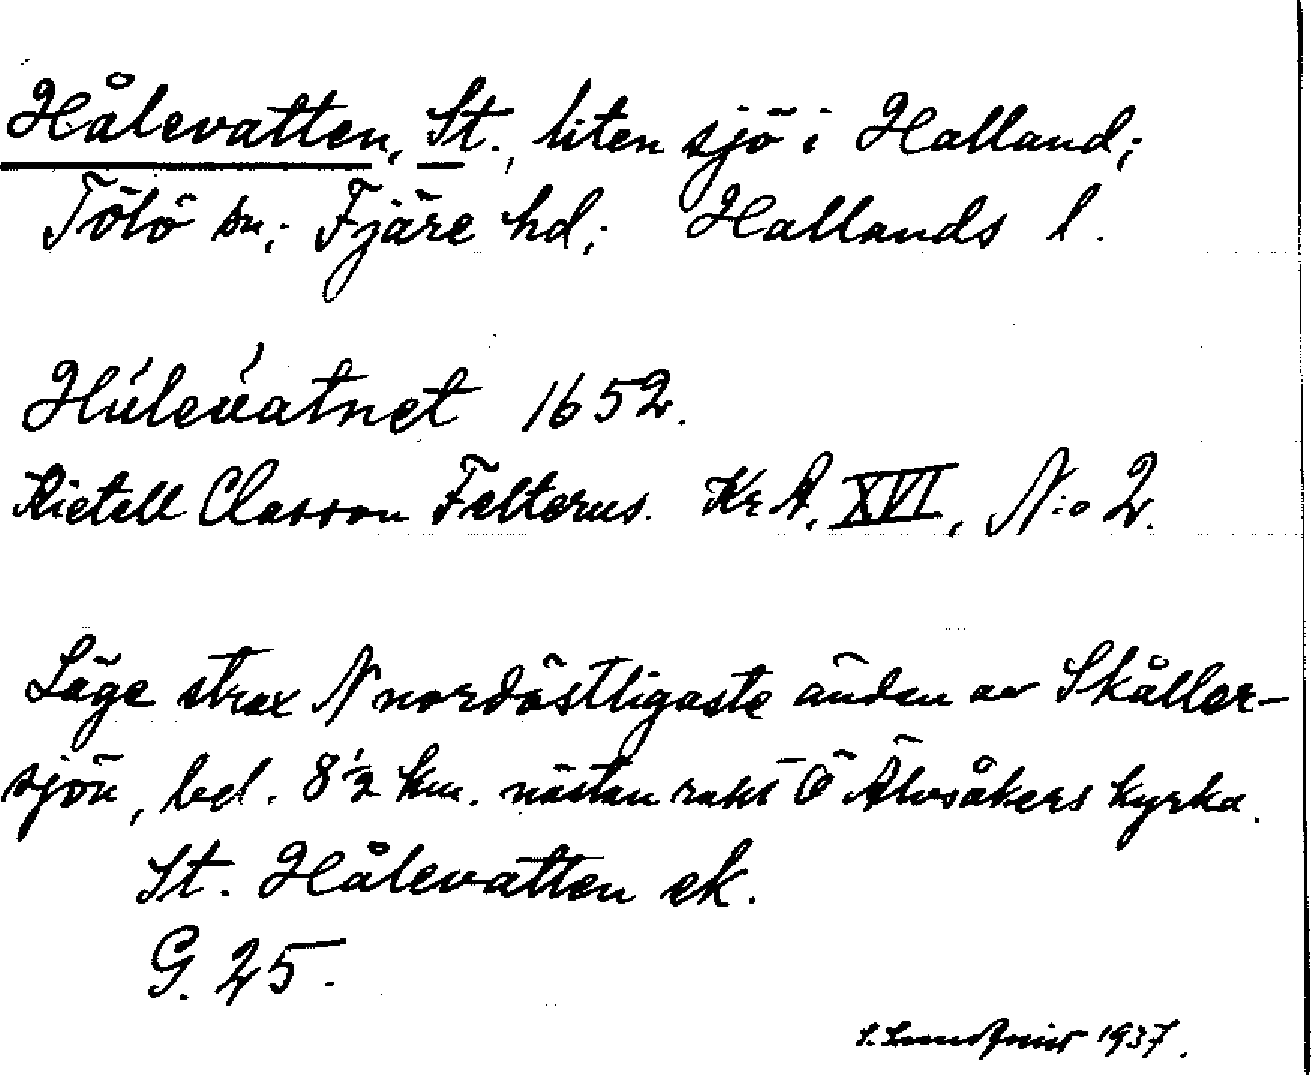 Hålevatten, St., liten sjö i Halland;
Tölö sn; Fjäre hd; Hallands l.
Húlevatnet 1652.
Kietell Classon Felterus. Kr A, XVI, N:o 2.
Läge strax N nordöstligaste änden av Skåller-
sjön, bel. 8½ km. nästan rakt Ö Älvsåkers kyrka.
St. Hålevatten ek.
G. 25.
S. Lundqvist 1937.